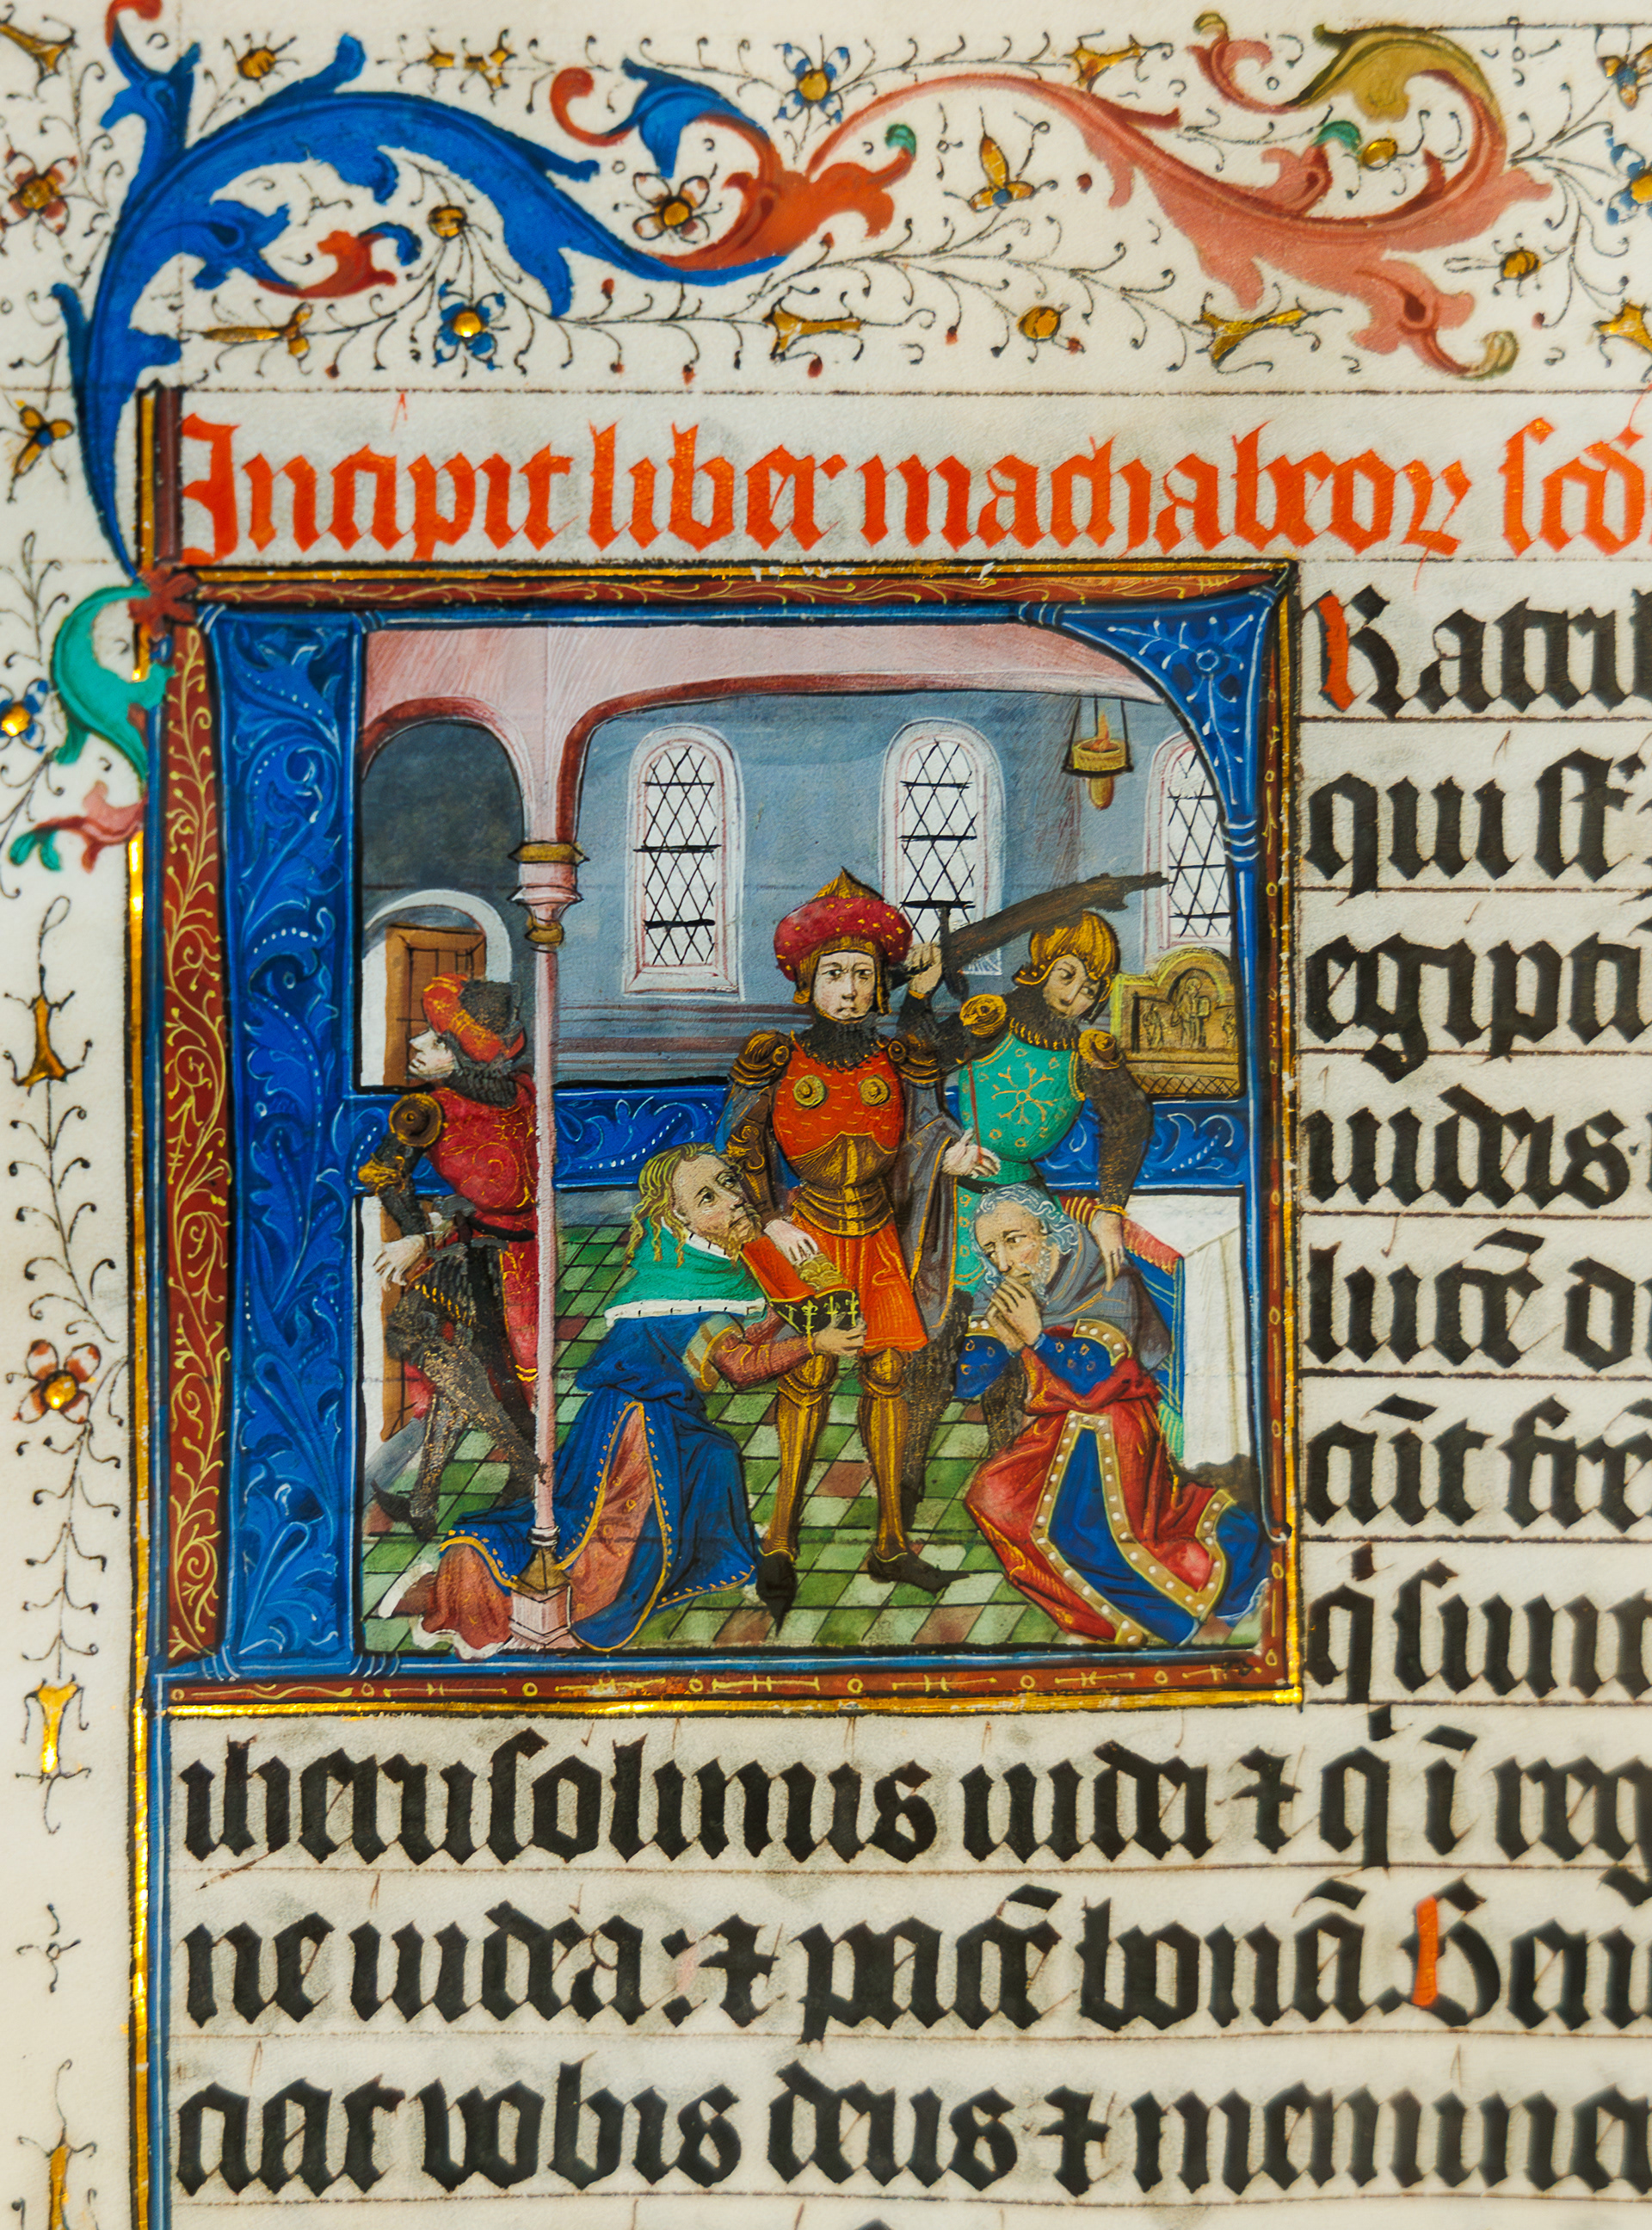 Incipit liber machabeoꝝ scd
Ratri
qui st
egipti
iudeis
lutē d
cūt frē
q̇ sunt
iherusolimis iudei ⁊ q̇ ī reg
ne iudea: ⁊ pacē bonā. Ben
ciat vobis deus ⁊ memine